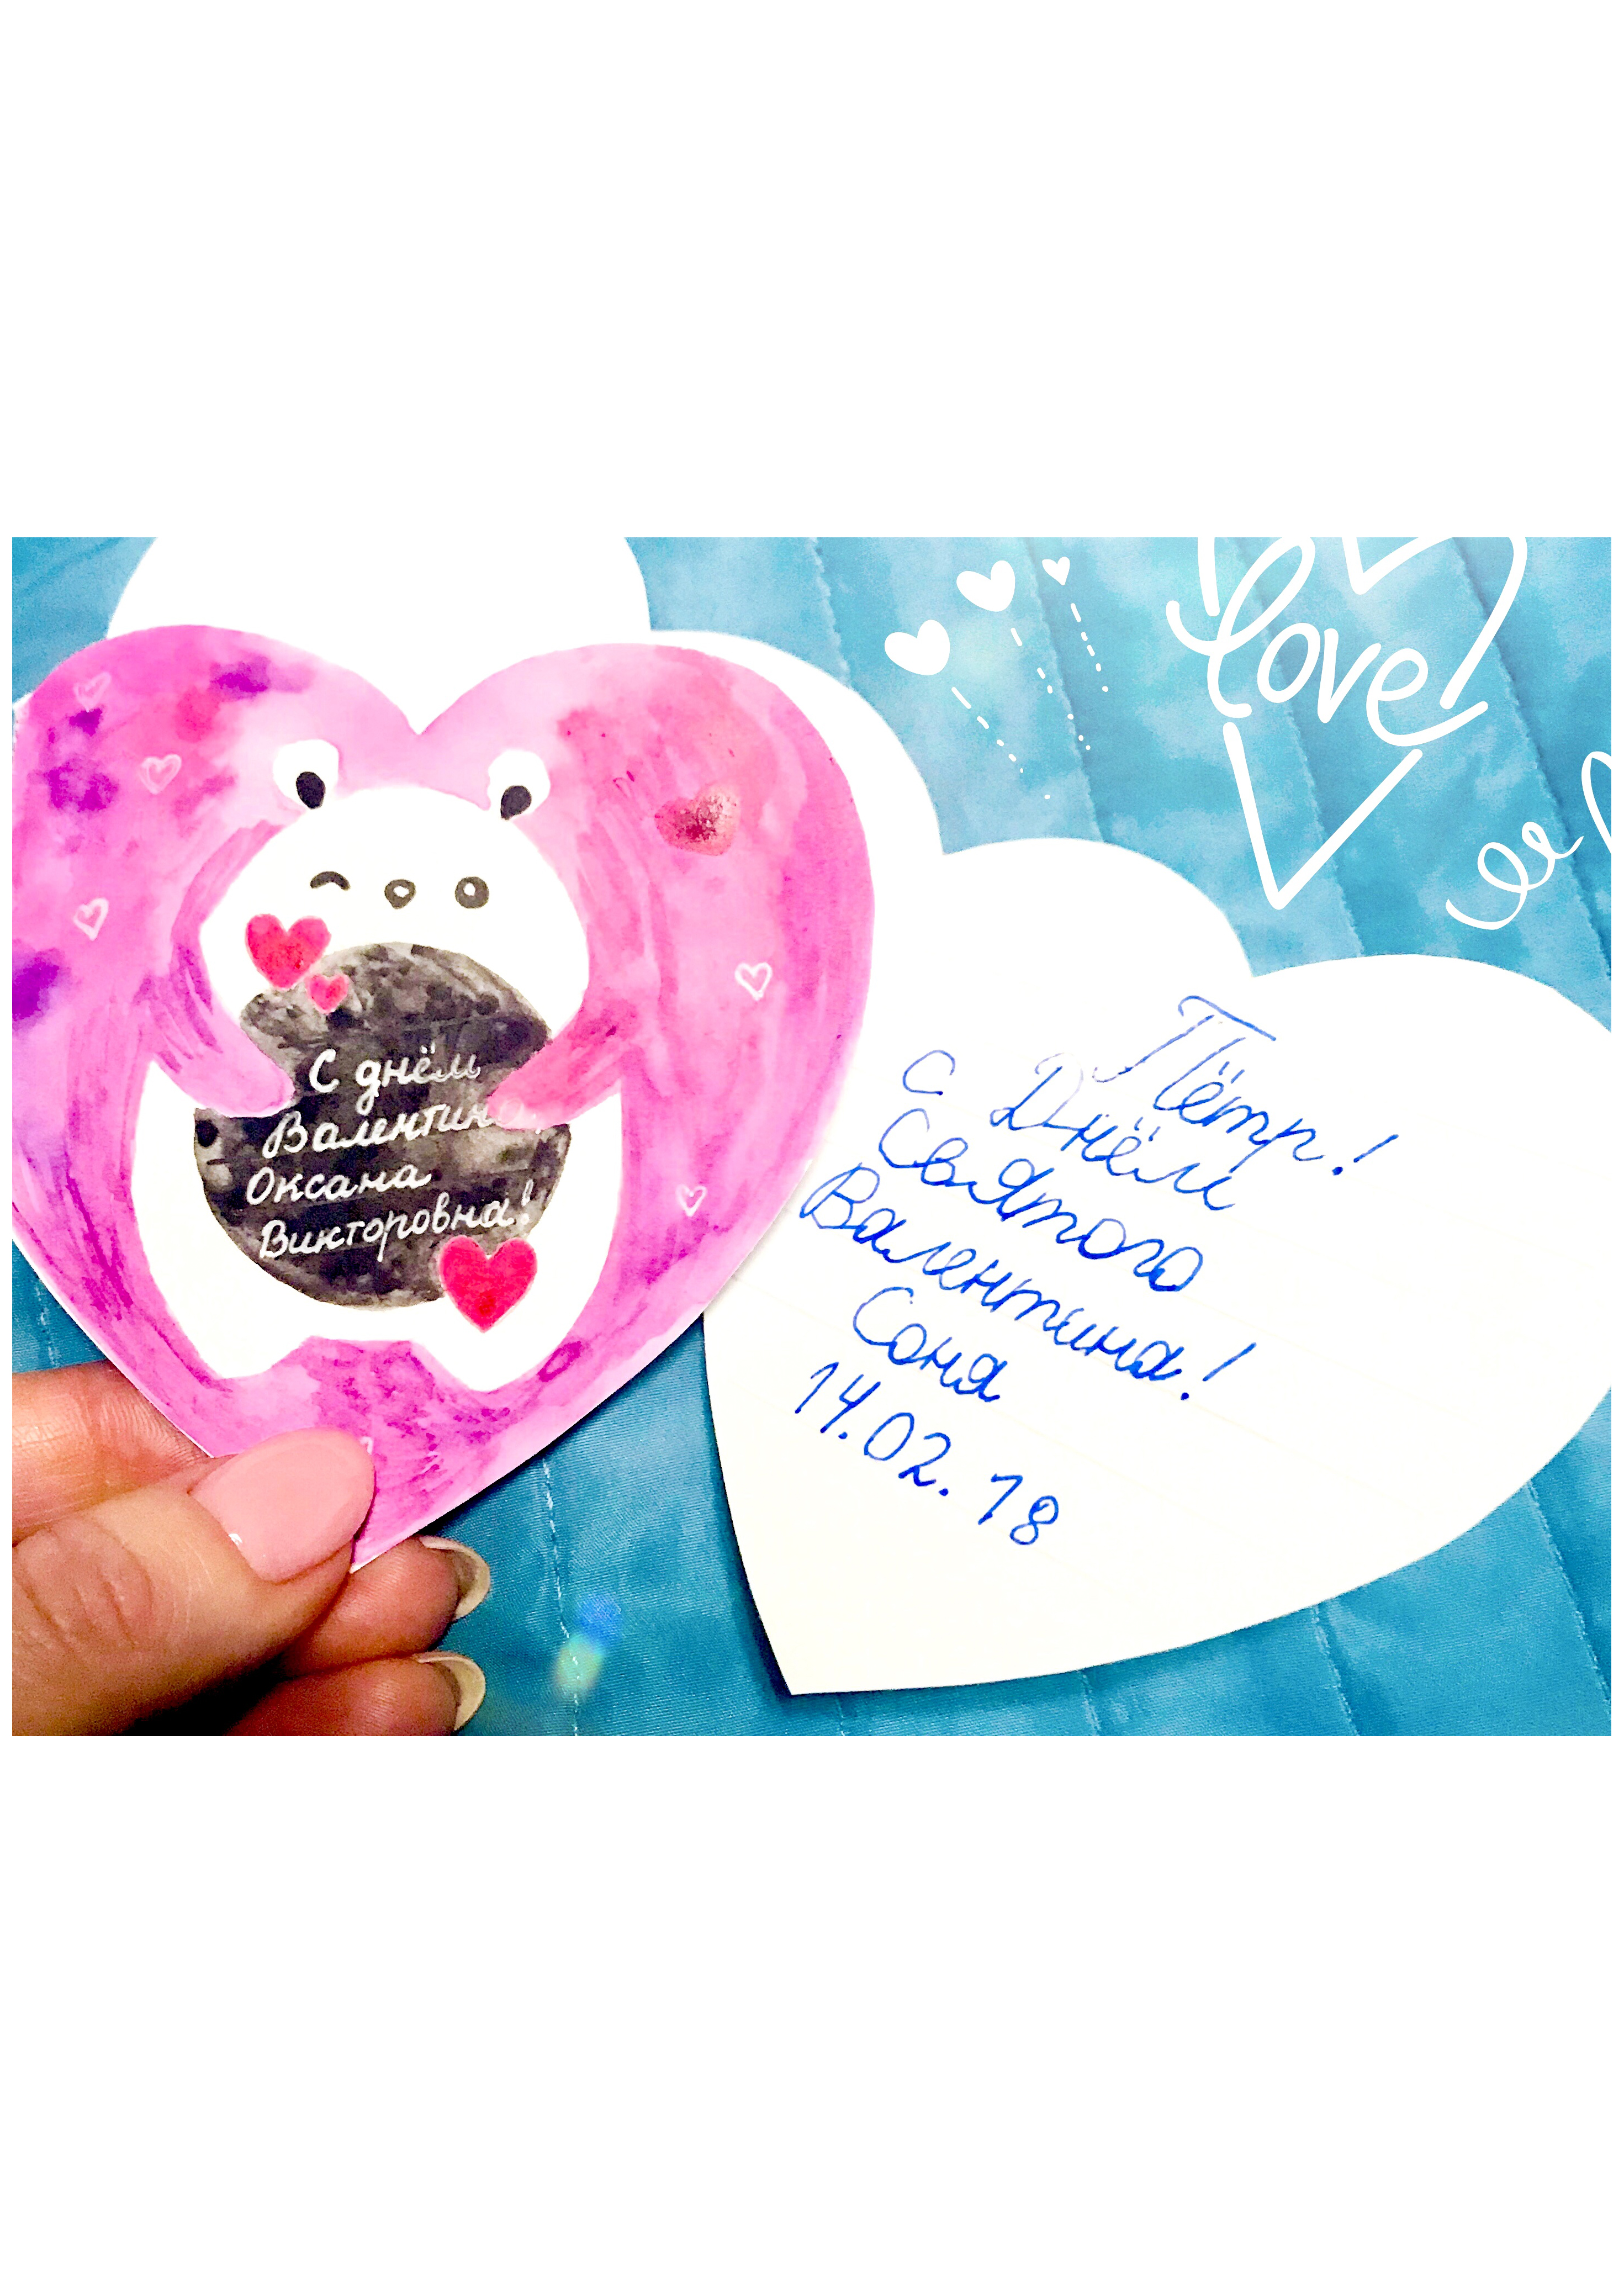 love
С днём
Валентина,
Оксана
Викторовна!
Пётр!
С Днём
Святого
Валентина!
Соня
14.02.18